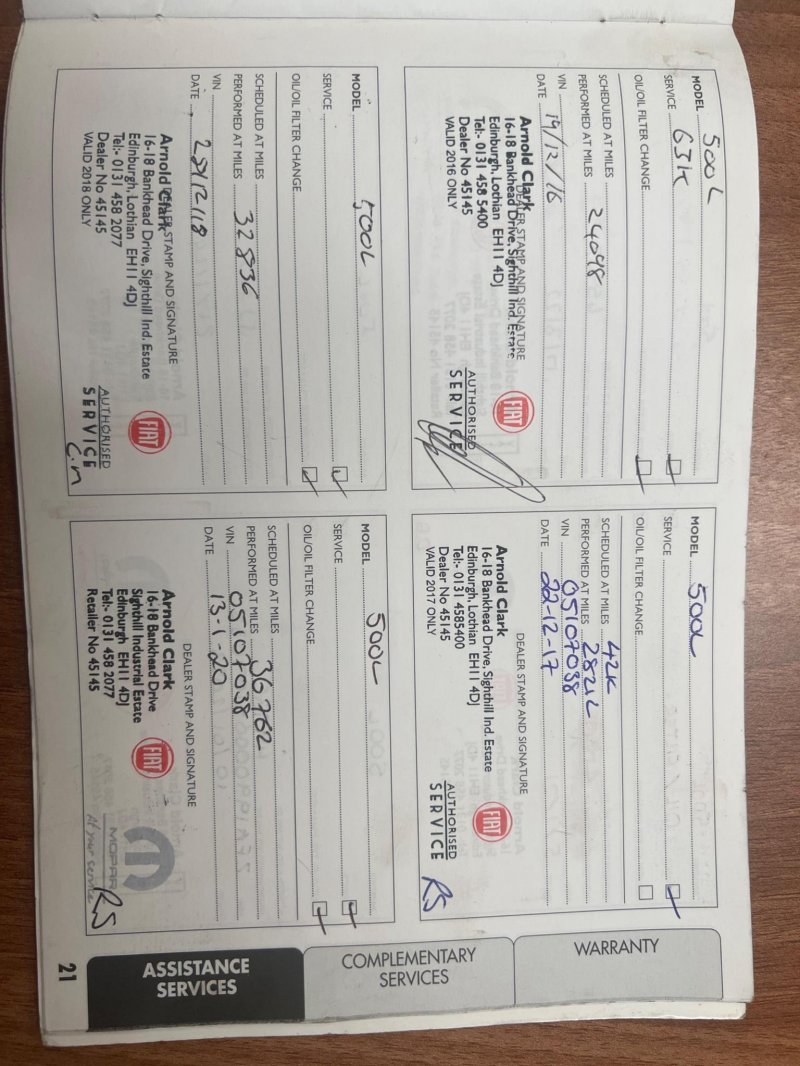 MODEL 500L
SERVICE 63K
OIL/OIL FILTER CHANGE
SCHEDULED AT MILES
PERFORMED AT MILES 24098
VIN
DATE 19/12/16
DEALER STAMP AND SIGNATURE
Arnold Clark
16-18 Bankhead Drive, Sighthill Ind. Estate
Edinburgh, Lothian EH11 4DJ
Tel:- 0131 458 5400
Dealer No 45145
VALID 2016 ONLY
FIAT
AUTHORISED
SERVICE
MODEL 500L
SERVICE
OIL/OIL FILTER CHANGE
SCHEDULED AT MILES 42K
PERFORMED AT MILES
VIN 05107038
DATE 22-12-17
DEALER STAMP AND SIGNATURE
Arnold Clark
16-18 Bankhead Drive, Sighthill Ind. Estate
Edinburgh, Lothian EH11 4DJ
Tel:- 0131 4585400
Dealer No 45145
VALID 2017 ONLY
FIAT
AUTHORISED
SERVICE
RS
MODEL 500L
SERVICE
OIL/OIL FILTER CHANGE
SCHEDULED AT MILES
PERFORMED AT MILES 32836
VIN
DATE
DEALER STAMP AND SIGNATURE
Arnold Clark
16-18 Bankhead Drive, Sighthill Ind. Estate
Edinburgh, Lothian EH11 4DJ
Tel:- 0131 458 2077
Dealer No 45145
VALID 2018 ONLY
FIAT
AUTHORISED
SERVICE
C.M
MODEL 500L
SERVICE
OIL/OIL FILTER CHANGE
SCHEDULED AT MILES
PERFORMED AT MILES 36,762
VIN 05107038
DATE 13-1-20
DEALER STAMP AND SIGNATURE
Arnold Clark
16-18 Bankhead Drive
Sighthill Industrial Estate
Edinburgh EH11 4DJ
Tel:- 0131 458 2077
Retailer No 45145
FIAT
MOPAR
At your service
RS
WARRANTY
COMPLEMENTARY
SERVICES
ASSISTANCE
SERVICES
21